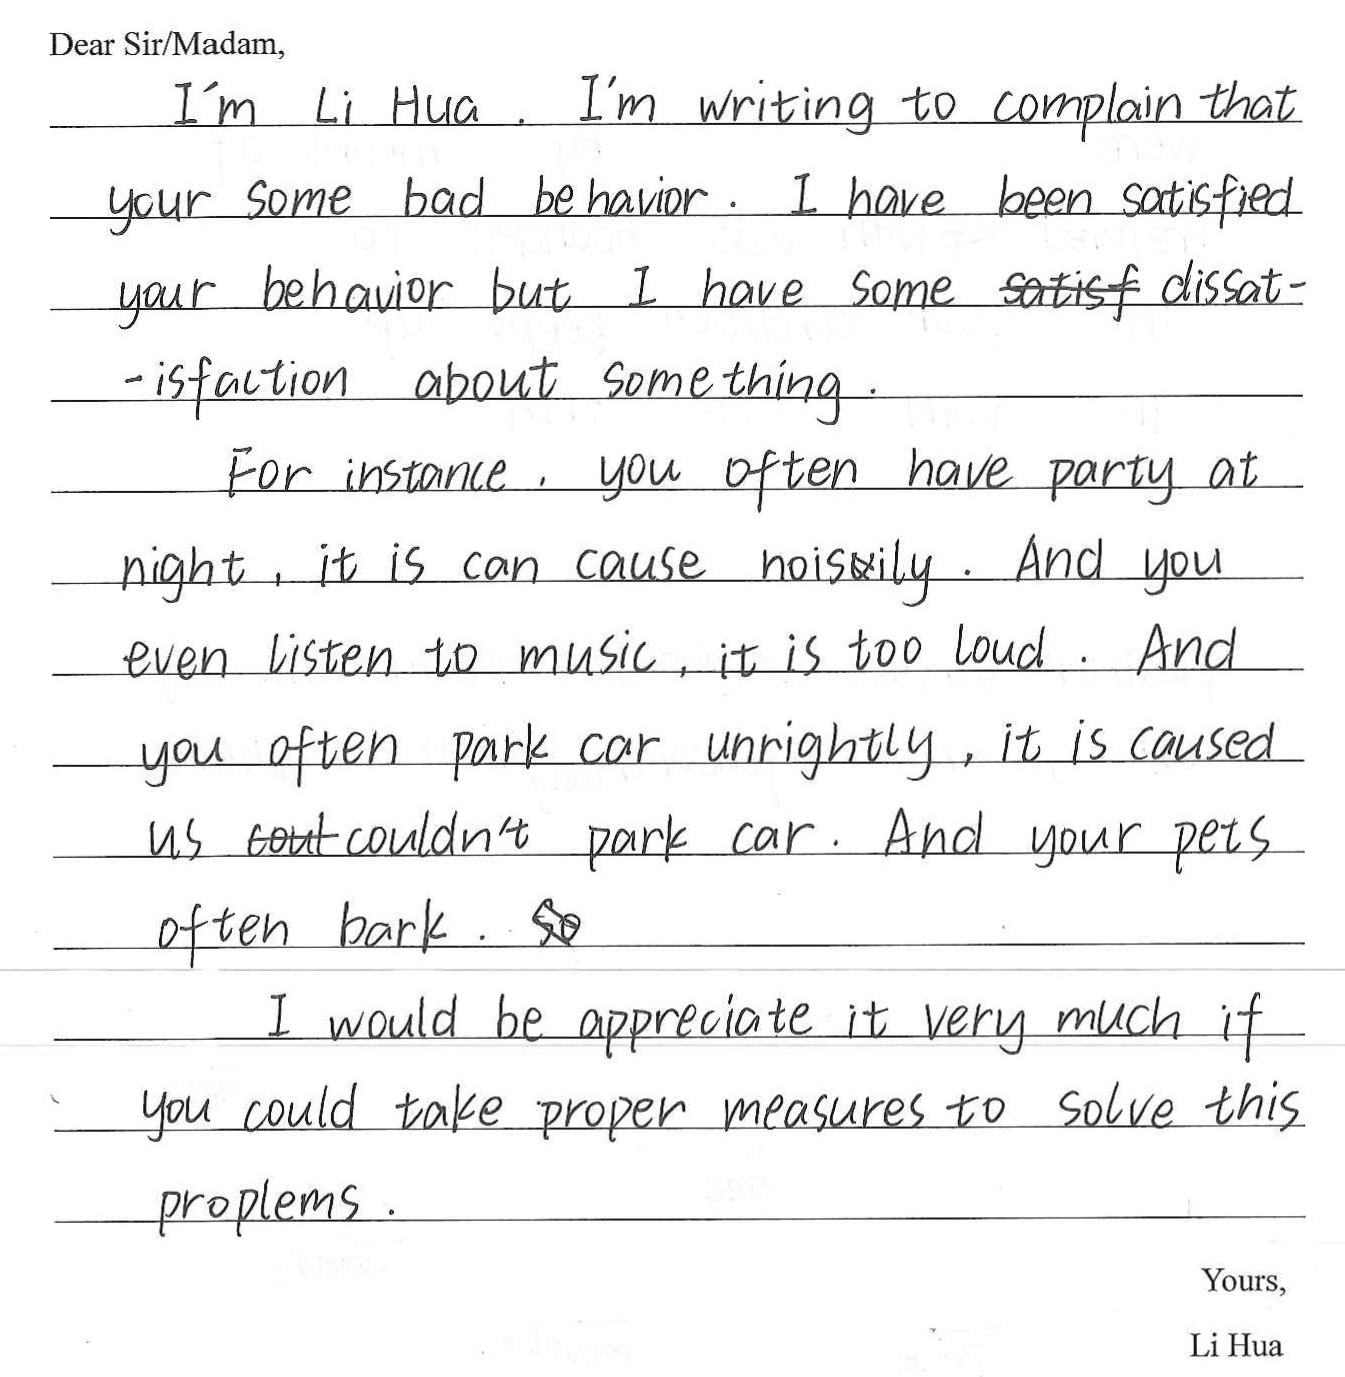 Dear Sir/Madam,
I'm Li Hua. I'm writing to complain that
your some bad behavior. I have been satisfied
your behavior but I have some satisf dissat-
-isfaction about something.
For instance, you often have party at
night, it is can cause noisily. And you
even listen to music, it is too loud. And
you often park car unrightly, it is caused
us cout couldn't park car. And your pets
often bark. So
I would be appreciate it very much if
you could take proper measures to solve this
proplems.
Yours,
Li Hua